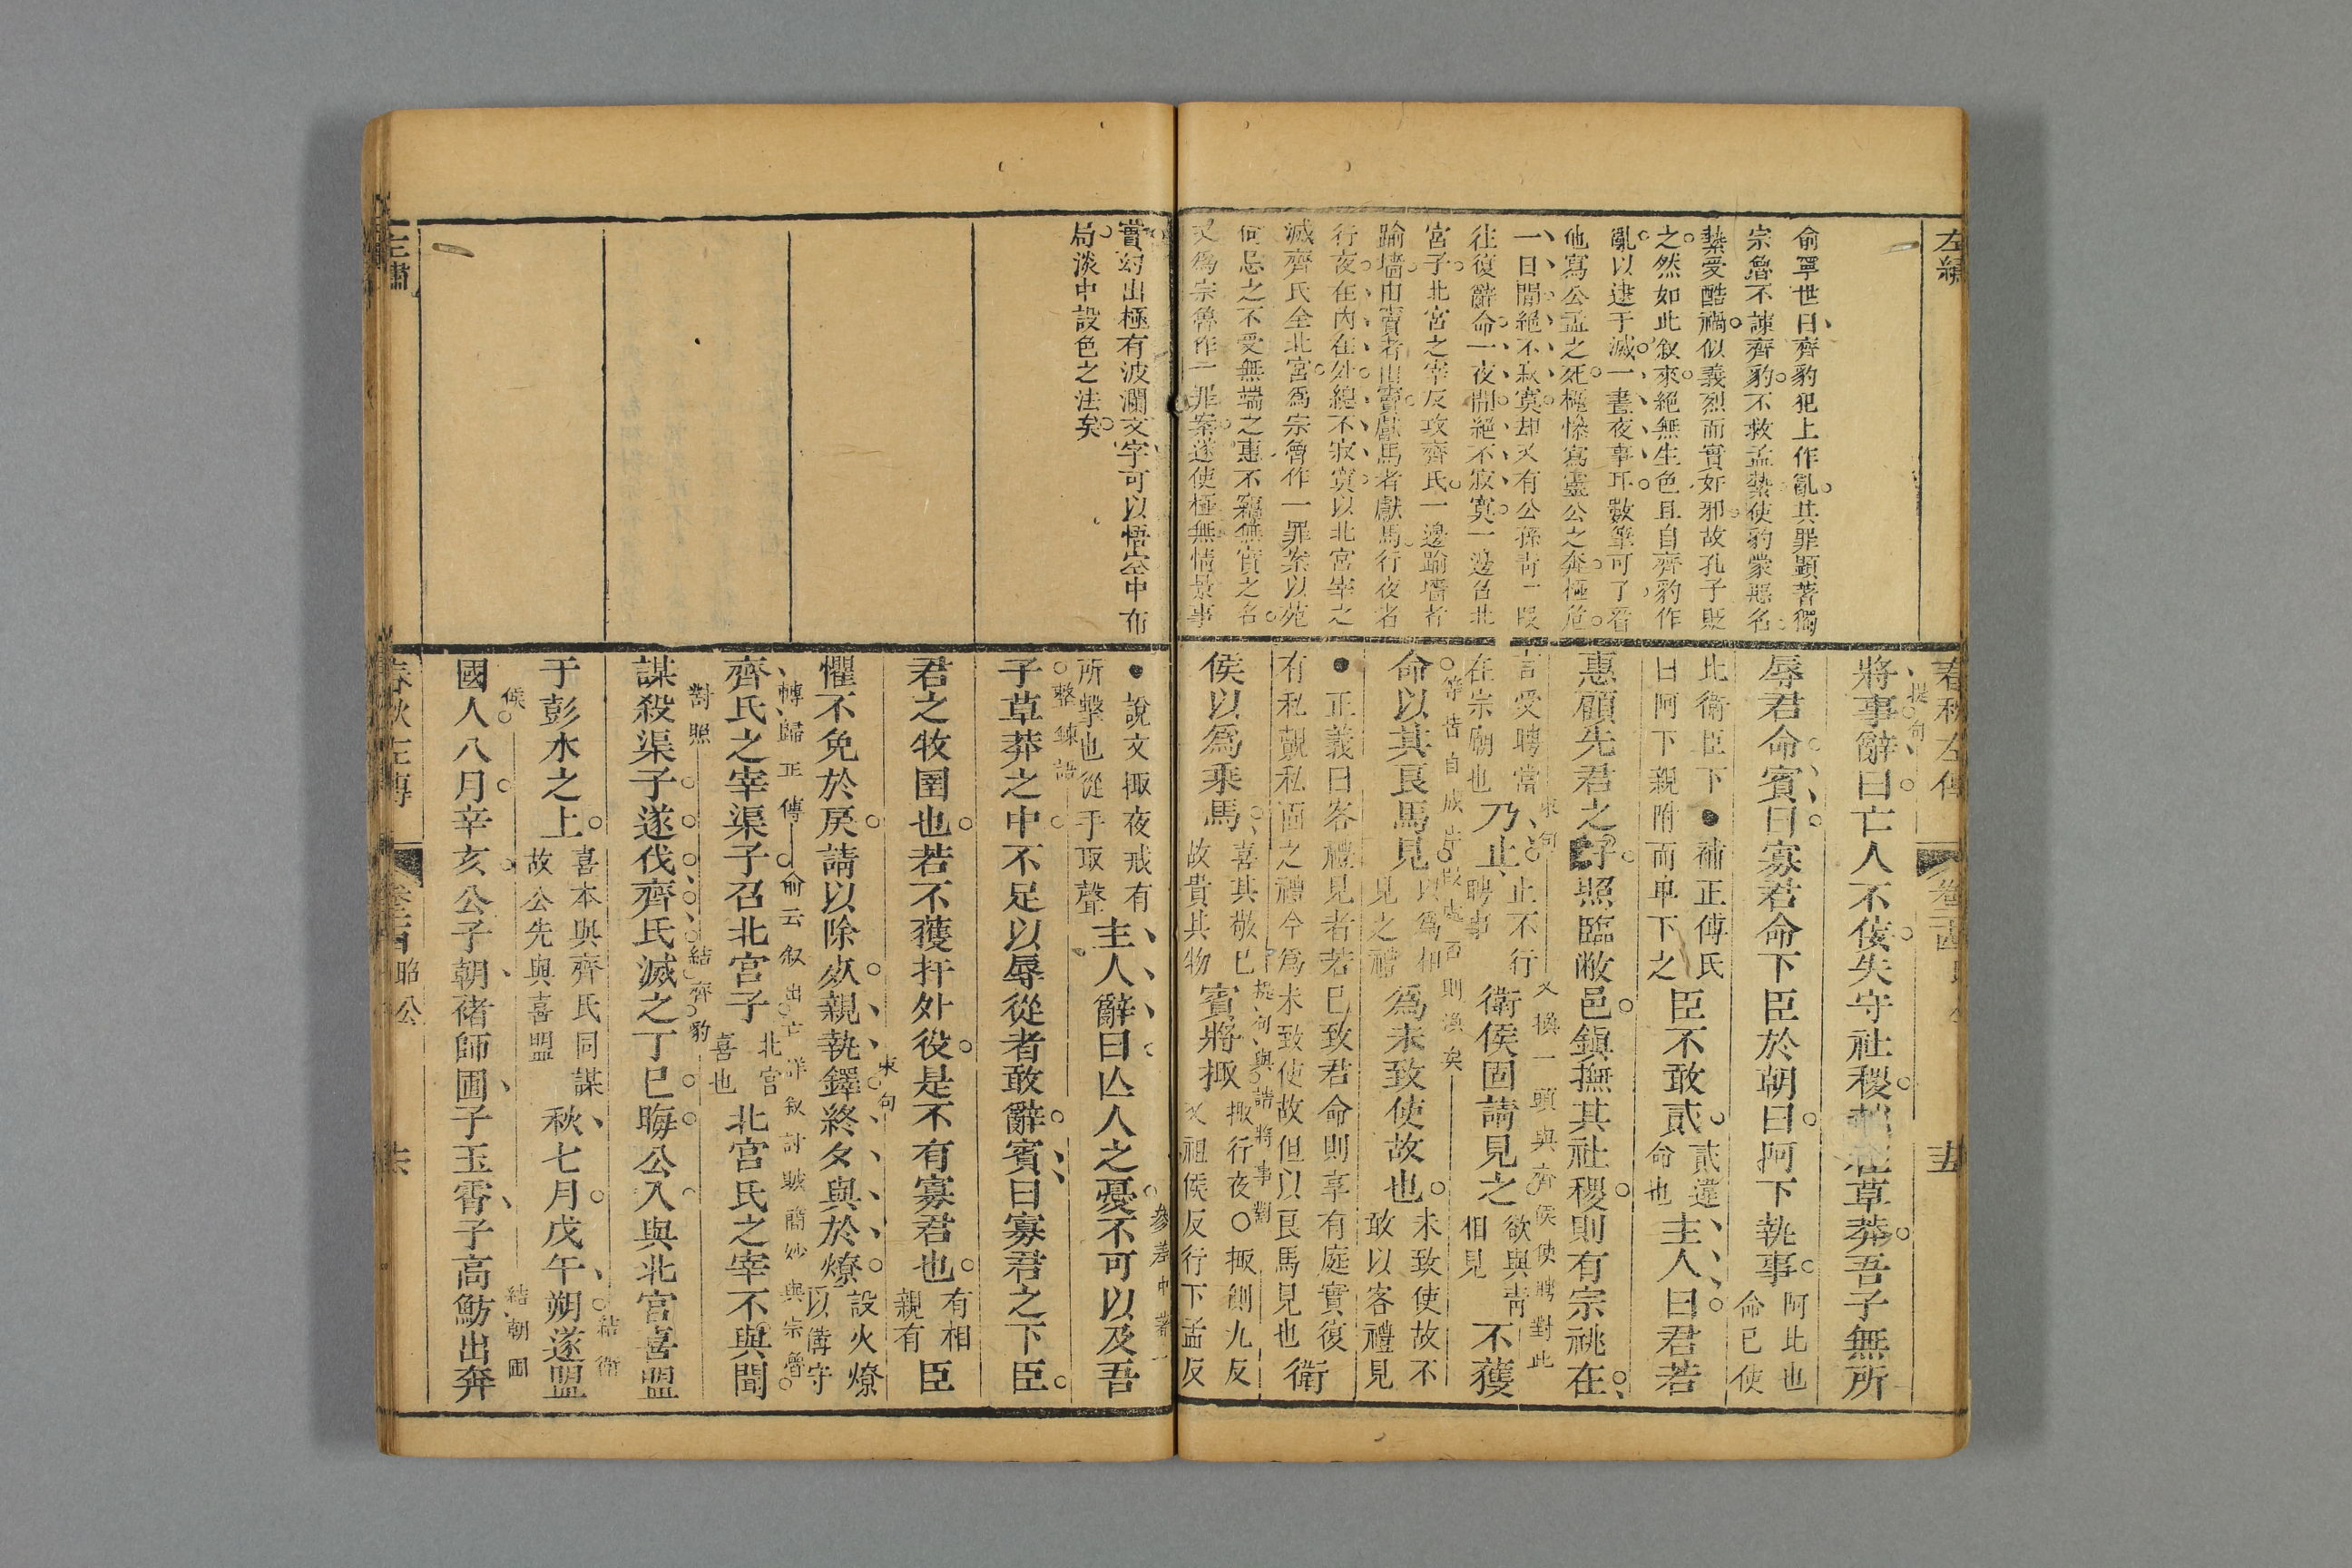 左繡
俞寧世曰齊豹犯上作亂其罪顯著獨
宗魯不諫齊豹不救孟縶使豹蒙惡名
縶受酷禍似義烈而實奸邪故孔子貶
之然如此叙來絕無生色且自齊豹作
亂以逮于滅一晝夜事耳數筆可了看
他寫公孟之死極慘寫靈公之奔極危
一日間絕不寂寞却又有公孫靑一段
往復辭命一夜間絕不寂寞一邊召北
宮子北宮之宰反攻齊氏一邊踰墻者
踰墻由竇者由竇獻馬者獻馬行夜者
行夜在內在外總不寂寞以北宮宰之
滅齊氏全北宮爲宗魯作一罪案以苑
何忌之不受無端之惠不竊無實之名
又爲宗魯作一罪案遂使極無情景事
春秋左傳 卷二十四 昭公 十五
將事辭曰亡人不佞失守社稷越在草莽吾子無所
提句
辱君命賓曰寡君命下臣於朝曰阿下執事
阿比也
命已使
比衛臣下●補正傅氏
曰阿下親附而卑下之
臣不敢貳
貳違
命也
主人曰君若
惠顧先君之好照臨敝邑鎮撫其社稷則有宗祧在
言受聘當
在宗廟也
乃止
止不行
聘事
衛侯固請見之
欲與靑
相見
不獲
束句
又換一頭與齊侯使聘對此
命以其良馬見
以爲相
見之禮
爲未致使故也
未致使故不
敢以客禮見
●正義曰客禮見者若已致君命則享有庭實復
有私覿私面之禮今爲未致使故但以良馬見也
衛
侯以爲乘馬
喜其敬己
故貴其物
賓將掫
掫行夜○掫側九反
又祖侯反行下孟反
提句與請將事對
實幻出極有波瀾文字可以悟空中布
局淡中設色之法矣
●說文掫夜戒有
所擊也從手取聲
主人辭曰亾人之憂不可以及吾
參差中著一
整鍊語
子草莽之中不足以辱從者敢辭賓曰寡君之下臣
君之牧圉也若不獲扞外役是不有寡君也
有相
親有
臣
懼不免於戾請以除死親執鐸終夕與於燎
設火燎
以備守
束句
轉歸正傳 俞云叙出亡詳叙討賊簡妙與宗魯
齊氏之宰渠子召北宮子
北宮
喜也
北宮氏之宰不與聞
對照
結齊豹
謀殺渠子遂伐齊氏滅之丁巳晦公入與北宮喜盟
于彭水之上
喜本與齊氏同謀
故公先與喜盟
秋七月戊午朔遂盟
結衛
侯
國人八月辛亥公子朝褚師圃子玉霄子高魴出奔
結朝圃
左繡
春秋左傳 卷二十四 昭公 十六